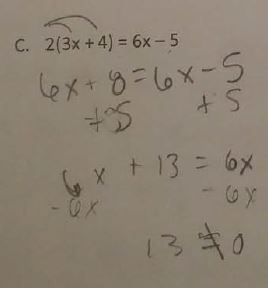 C. 2(3x + 4) = 6x - 5
6x + 8 = 6x - 5
+5 +5
6x + 13 = 6x
-6x -6x
13 ≠ 0